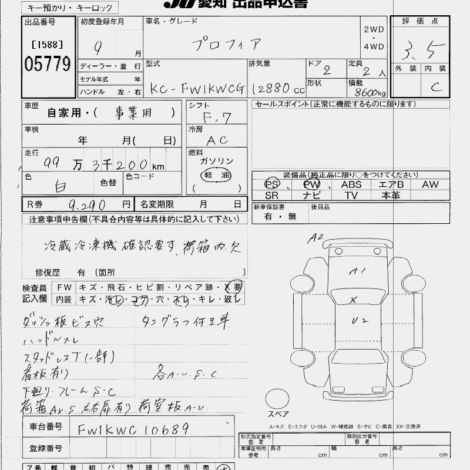 キー預かり・キーロック
JU 愛知 出品申込書
出品番号
[1588]
05779
初度登録年月
9 月
車名・グレード
プロフィア
2WD
・
4WD
評価点
3.5
外装 内装
C
ディーラー・並行
モデル年式 年
ハンドル 左・右
型式
KC-FW1KWCG
排気量
12880 cc
ドア
2
形状
定員
2 人
積載
8600kg
車歴
自家用・(事業用)
シフト
F.7
車検
年 月(日)
冷房
AC
走行
99万3千200km
燃料
ガソリン
軽油
色 白
色替
色コード
R券
9,290円
名変期限 月 日
セールスポイント(正常に機能するものに限ります)
装備品(純正品に限り○をつけてください)
PS PW ABS エアB AW
SR ナビ TV 本革
新車保証書
有・無
後日品
注意事項申告欄(不具合内容等は具体的に記入して下さい)
冷蔵冷凍機確認要す、荷箱内欠
修復歴 有(箇所 )
検査員記入欄
FW キズ・飛石・ヒビ割・リペア跡・X 要
内装 キズ・汚レ・コゲ・穴・スレ・キレ・破レ
A2
A1
X
U2
ダッシュ板ビス穴 タコグラフ付工車
ハンドルスレ
スタッドレスT(一部)
看板有り 各A・U S・C
下廻り・フレームS・C
スペア
A=キズ E=エクボ
XX=交換済
車台番号
FW1KWC10689
登録番号
形式指定番号
類別区分番号